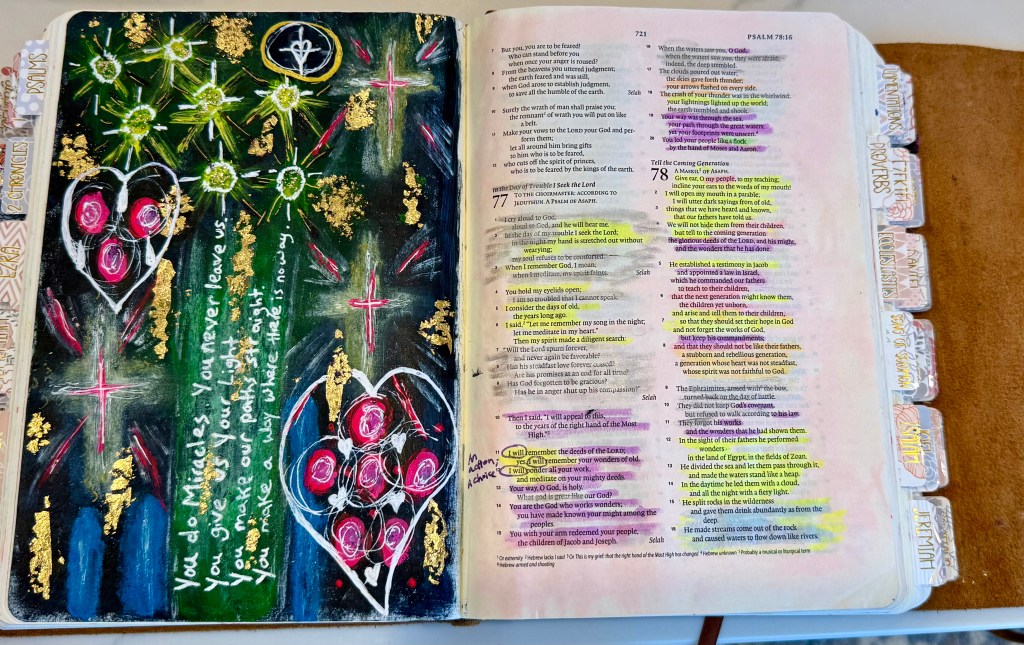 PSALMS
2 CHRONICLES
EZRA
You do Miracles. You never leave us
You give us Your Light
You make our paths straight
You make a way where there is noway.
721
7 But you, you are to be feared!
Who can stand before you
when once your anger is roused?
8 From the heavens you uttered judgment;
the earth feared and was still,
9 when God arose to establish judgment,
to save all the humble of the earth. Selah
10 Surely the wrath of man shall praise you;
the remnant of wrath you will put on like
a belt.
11 Make your vows to the LORD your God and per-
form them;
let all around him bring gifts
to him who is to be feared,
12 who cuts off the spirit of princes,
who is to be feared by the kings of the earth.
In the Day of Trouble I Seek the Lord
77 TO THE CHOIRMASTER: ACCORDING TO
JEDUTHUN. A PSALM OF ASAPH.
1 I cry aloud to God,
aloud to God, and he will hear me.
2 In the day of my trouble I seek the Lord;
in the night my hand is stretched out without
wearying;
my soul refuses to be comforted.
3 When I remember God, I moan;
when I meditate, my spirit faints. Selah
4 You hold my eyelids open;
I am so troubled that I cannot speak.
5 I consider the days of old,
the years long ago.
6 I said, "Let me remember my song in the night;
let me meditate in my heart."
Then my spirit made a diligent search:
7 "Will the Lord spurn forever,
and never again be favorable?
8 Has his steadfast love forever ceased?
Are his promises at an end for all time?
9 Has God forgotten to be gracious?
Has he in anger shut up his compassion?"
Selah
10 Then I said, "I will appeal to this,
to the years of the right hand of the Most
High."
An
action,
A choice
11 I will remember the deeds of the LORD;
yes, I will remember your wonders of old.
12 I will ponder all your work,
and meditate on your mighty deeds.
13 Your way, O God, is holy.
What god is great like our God?
14 You are the God who works wonders;
you have made known your might among the
peoples.
15 You with your arm redeemed your people,
the children of Jacob and Joseph. Selah
PSALM 78:16
16 When the waters saw you, O God,
when the waters saw you, they were afraid;
indeed, the deep trembled.
17 The clouds poured out water;
the skies gave forth thunder;
your arrows flashed on every side.
18 The crash of your thunder was in the whirlwind;
your lightnings lighted up the world;
the earth trembled and shook.
19 Your way was through the sea,
your path through the great waters;
yet your footprints were unseen.
20 You led your people like a flock
by the hand of Moses and Aaron.
Tell the Coming Generation
78 A MASKIL OF ASAPH.
Give ear, O my people, to my teaching;
incline your ears to the words of my mouth!
2 I will open my mouth in a parable;
I will utter dark sayings from of old,
3 things that we have heard and known,
that our fathers have told us.
4 We will not hide them from their children,
but tell to the coming generation
the glorious deeds of the LORD, and his might,
and the wonders that he has done.
5 He established a testimony in Jacob
and appointed a law in Israel,
which he commanded our fathers
to teach to their children,
6 that the next generation might know them,
the children yet unborn,
and arise and tell them to their children,
7 so that they should set their hope in God
and not forget the works of God,
but keep his commandments;
8 and that they should not be like their fathers,
a stubborn and rebellious generation,
a generation whose heart was not steadfast,
whose spirit was not faithful to God.
9 The Ephraimites, armed with the bow,
turned back on the day of battle.
10 They did not keep God's covenant,
but refused to walk according to his law.
11 They forgot his works
and the wonders that he had shown them.
12 In the sight of their fathers he performed
wonders
in the land of Egypt, in the fields of Zoan.
13 He divided the sea and let them pass through it,
and made the waters stand like a heap.
14 In the daytime he led them with a cloud,
and all the night with a fiery light.
15 He split rocks in the wilderness
and gave them drink abundantly as from the
deep.
16 He made streams come out of the rock
and caused waters to flow down like rivers.
1 Or extremity 2 Hebrew lacks I said 3 Or This is my grief: that the right hand of the Most High has changed 4 Hebrew unknown 5 Probably a musical or liturgical term
6 Hebrew armed and shooting
PROVERBS
JEREMIAH